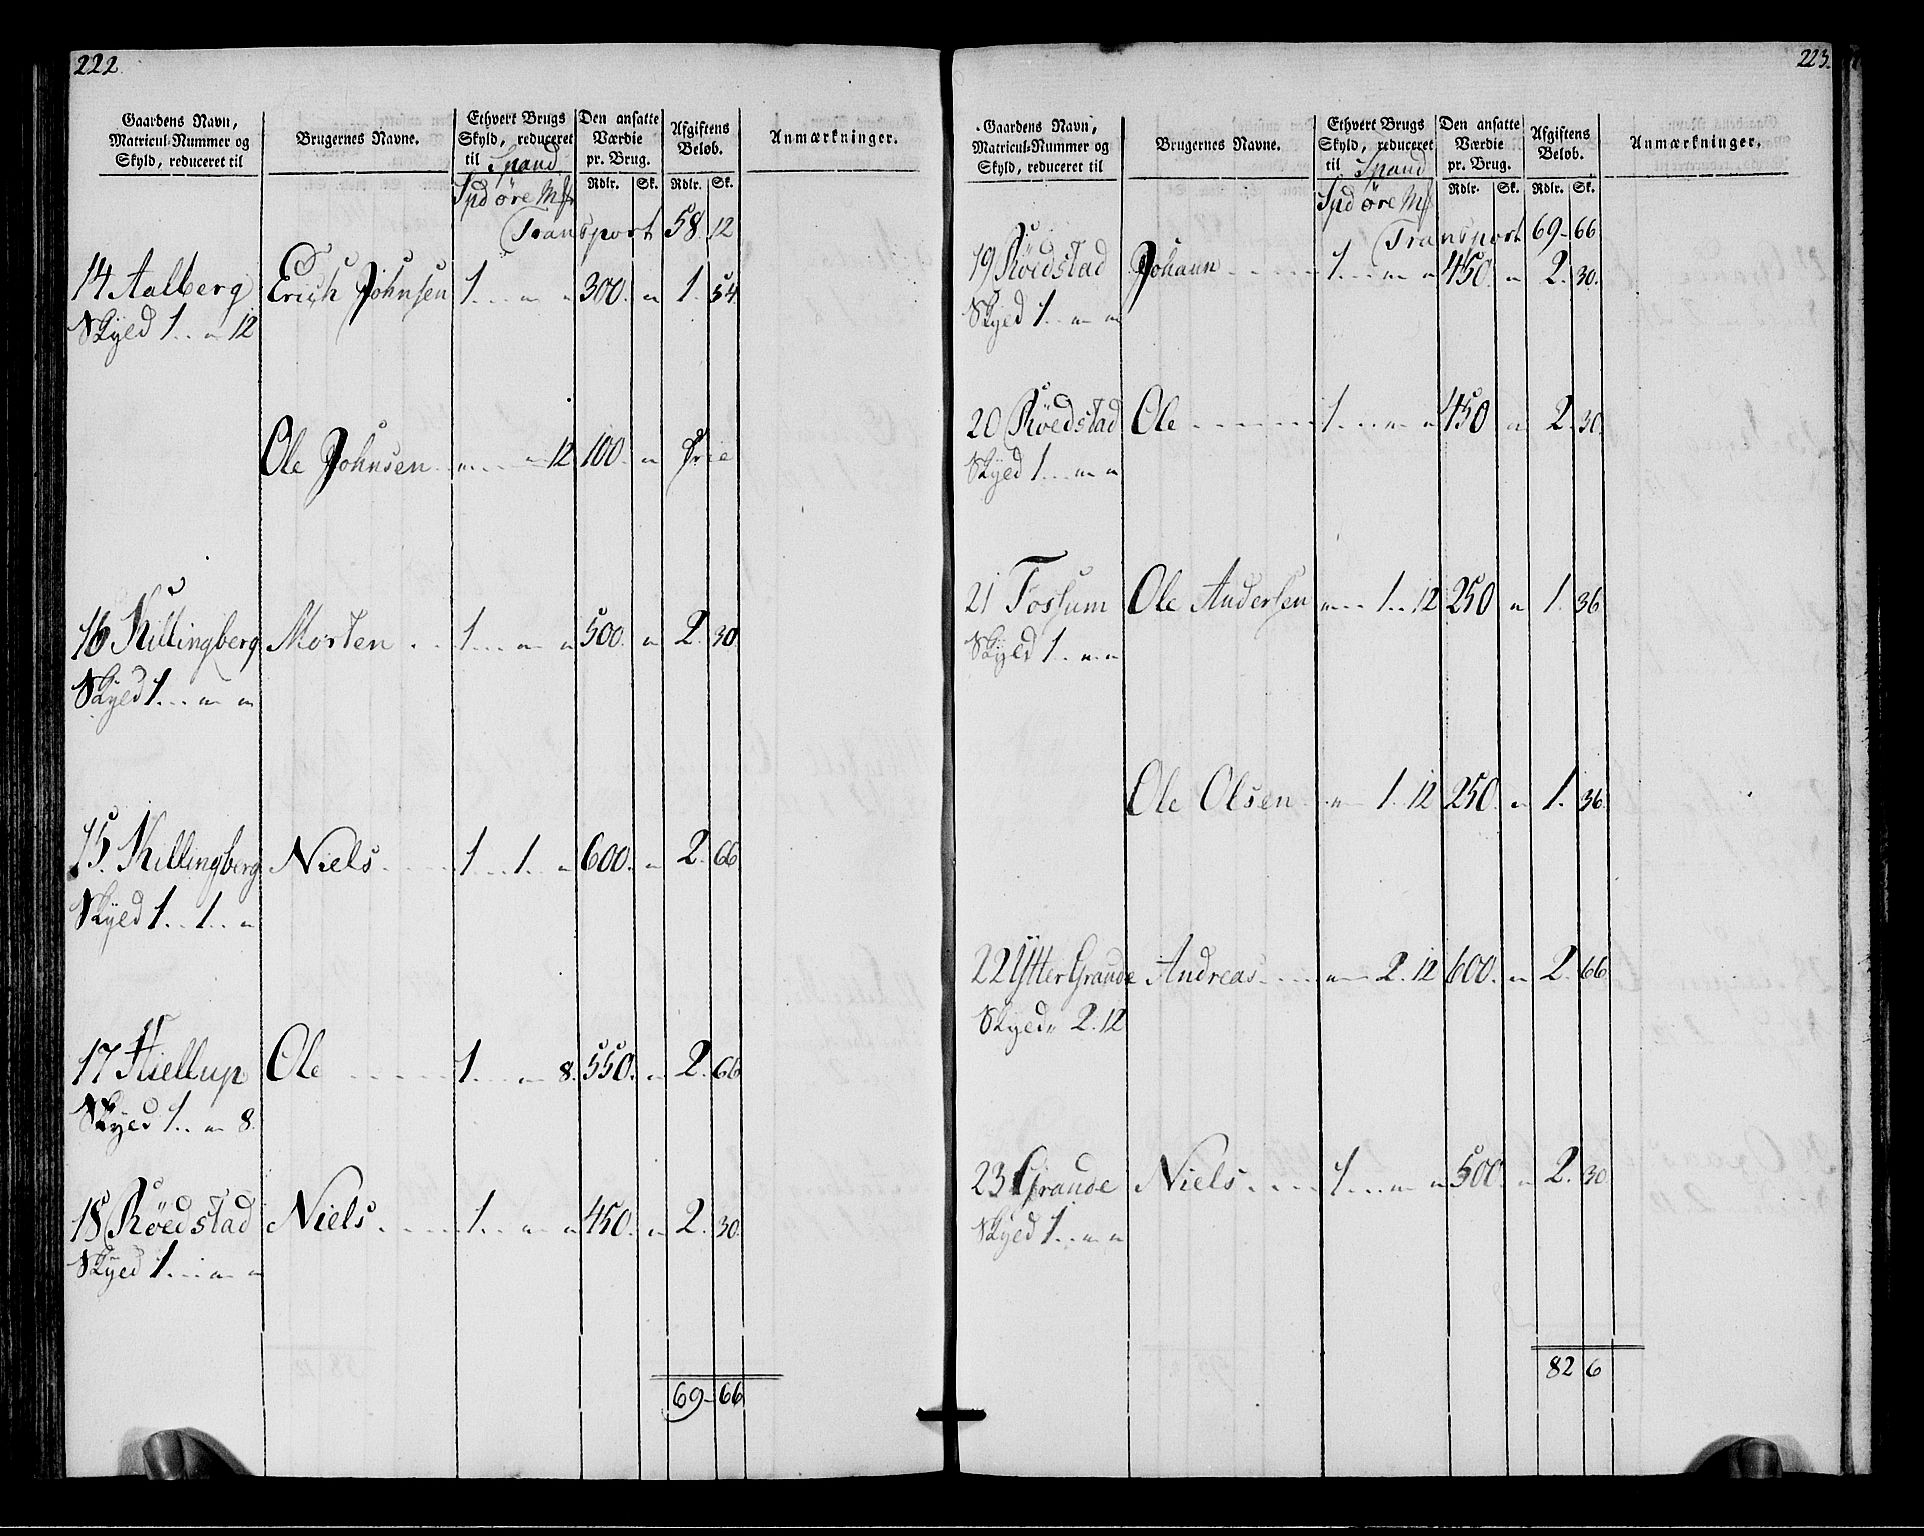 222
Gaardens Navn, Matricul-Nummer og Skyld, reduceret til | Brugernes Navne. | Ethvert Brugs Skyld, reduceret til Spand | Den ansatte Værdie pr. Brug. | Afgiftens Beløb. | Anmærkninger.
Spd Øre Mk | Rdlr. | Sk. | Rdlr. | Sk.
Transport 58. 12
14 Aalberg Erich Johnsen 1. . . „ „ 300. „ 1. 54
Skyld 1. . „ 12
Ole Johnsen „ . . . „ 12 100. „ Frie
16 Killingberg Morten . . 1. . . „ „ 500. „ 2. 30
Skyld 1. . . „ „
15. Killingberg Niels . . . . 1. . 1. . „ 600. „ 2. 66
Skyld 1. . 1. . „
17 Hiellup Ole . . . . . 1. . . „ 8. 550. „ 2. 66
Skyld 1. . „ 8.
18 Röedstad Niels . . . . . 1. . „ „ 450. „ 2. 30.
Skyld 1. . . „ „
69 - 66
223.
Gaardens Navn, Matricul-Nummer og Skyld, reduceret til | Brugernes Navne. | Ethvert Brugs Skyld, reduceret til Spand | Den ansatte Værdie pr. Brug. | Afgiftens Beløb. | Anmærkninger.
Spd Øre Mk | Rdlr. | Sk. | Rdlr. | Sk.
Transport 69 - 66
19 Röedstad Johann . . . . . 1. . . „ „ 450. „ 2. 30.
Skyld 1. . „ „
20 Röedstad Ole . . . . . . 1. . . „ „ 450 „ 2. 30.
Skyld 1. . . „ „
21 Fossum Ole Andersen „ . . 1. . 12 250 „ 1. 36
Skyld 1. . „ „
Ole Olsen. . „ 1. 12 250. „ 1. 36.
22 Ytter Grande Andreas. . . . „ 2. 12 600. „ 2. 66
Skyld „ 2. 12
23 Grande Niels . . . . 1. . . „ „ 500. „ 2. 30
Skyld 1. . „ „
82 6